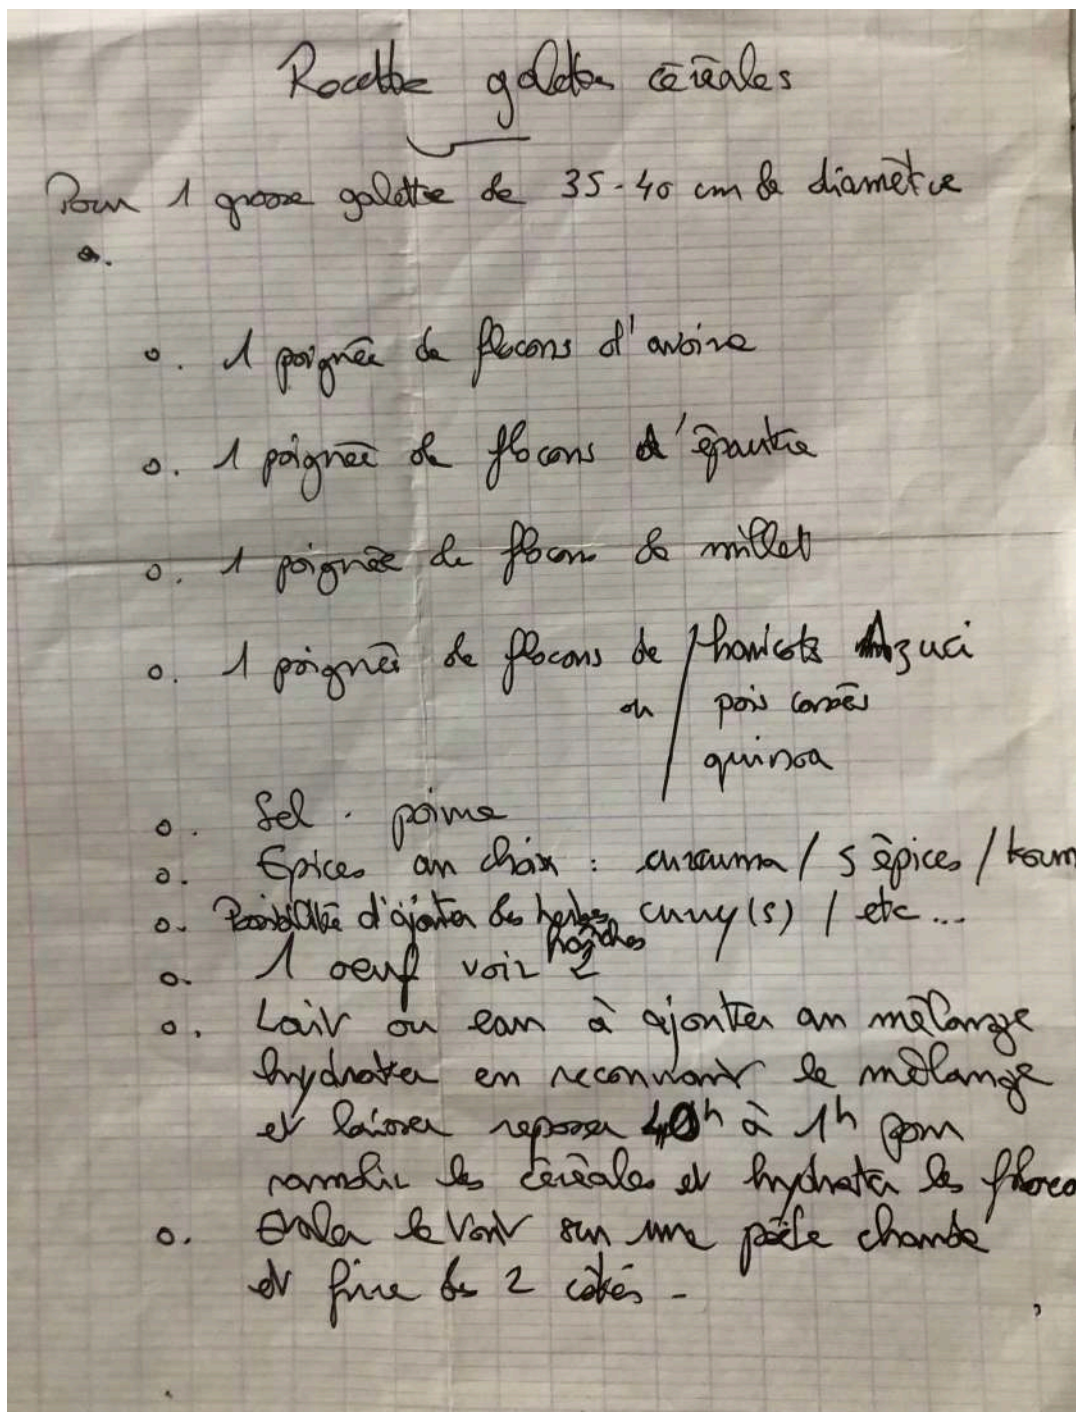 Recette galettes céréales
Pour 1 grosse galette de 35-40 cm de diamètre
o. 1 poignée de flocons d'avoine
o. 1 poignée de flocons d'épautre
o. 1 poignée de flocons de millet
o. 1 poignée de flocons de / haricots Azuci
ou / pois cassés
quinoa
o. Sel . poivre
o. Epices au choix : curcuma / 5 épices /
o. Possibilité d'ajouter des herbes curry(s) / etc...
fraîches
o. 1 oeuf voir 2
o. Lait ou eau à ajouter au mélange
hydrater en recouvrant le mélange
et laisser reposer 40h à 1h pour
ramolir les céréales et hydrater les
o. Etaler le tout sur une poêle chaude
et frire des 2 côtés -